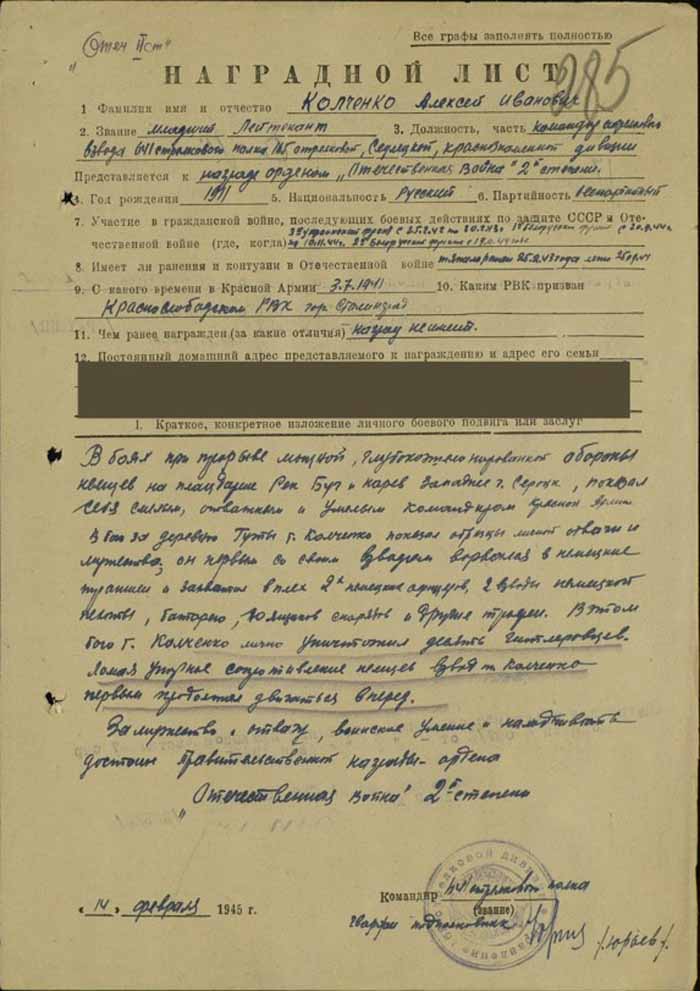 Все графы заполнять полностью
"Отеч II ст"
285
НАГРАДНОЙ ЛИСТ
1 Фамилия имя и отчество Колченко Алексей Иванович
2. Звание Младший Лейтенант 3. Должность, часть командир стрелкового
взвода 641 стрелкового полка 165 стрелковой, Седлецкой, краснознаменной дивизии
Представляется к награде орденом „Отечественная Война" 2й степени.
4. Год рождения 1911 5. Национальность Русский 6. Партийность беспартийный
7. Участие в гражданской войне, последующих боевых действиях по защите СССР и Оте-
чественной войне (где, когда)
8. Имеет ли ранения и контузии в Отечественной войне
9. С какого времени в Красной Армии 3.7.1941 10. Каким РВК призван
Краснослободским РВК гор. Сталинград
11. Чем ранее награжден (за какие отличия) наград не имеет.
12. Постоянный домашний адрес представляемого к награждению и адрес его семьи
I. Краткое, конкретное изложение личного боевого подвига или заслуг
В боях при прорыве мощной, глубокоэшелонированной обороны
немцев на плацдарме Рек Буг и Нарев Западнее г. Сероцк, показал
себя смелым, отважным и умелым командиром Красной Армии
В бою за деревню Гуты т. Колченко показал образцы личной отваги и
мужества, он первым со своим взводом ворвался в немецкие
траншеи и захватил в плен 2х немецких офицеров, 2 взвода немецкой
пехоты, батарею, ящиков снарядов и другие трофеи. В этом
бою т. Колченко лично уничтожил десять гитлеровцев.
Ломая упорное сопротивление немцев взвод т. Колченко
первым продолжал двигаться вперед.
За мужество и отвагу, воинское умение и находчивость
достоин Правительственной награды - ордена
"Отечественная война" 2й степени
Командир 641 стрелкового полка
(звание)
« 14 » февраля 1945 г.
Гвардии подполковник /Юрьев/